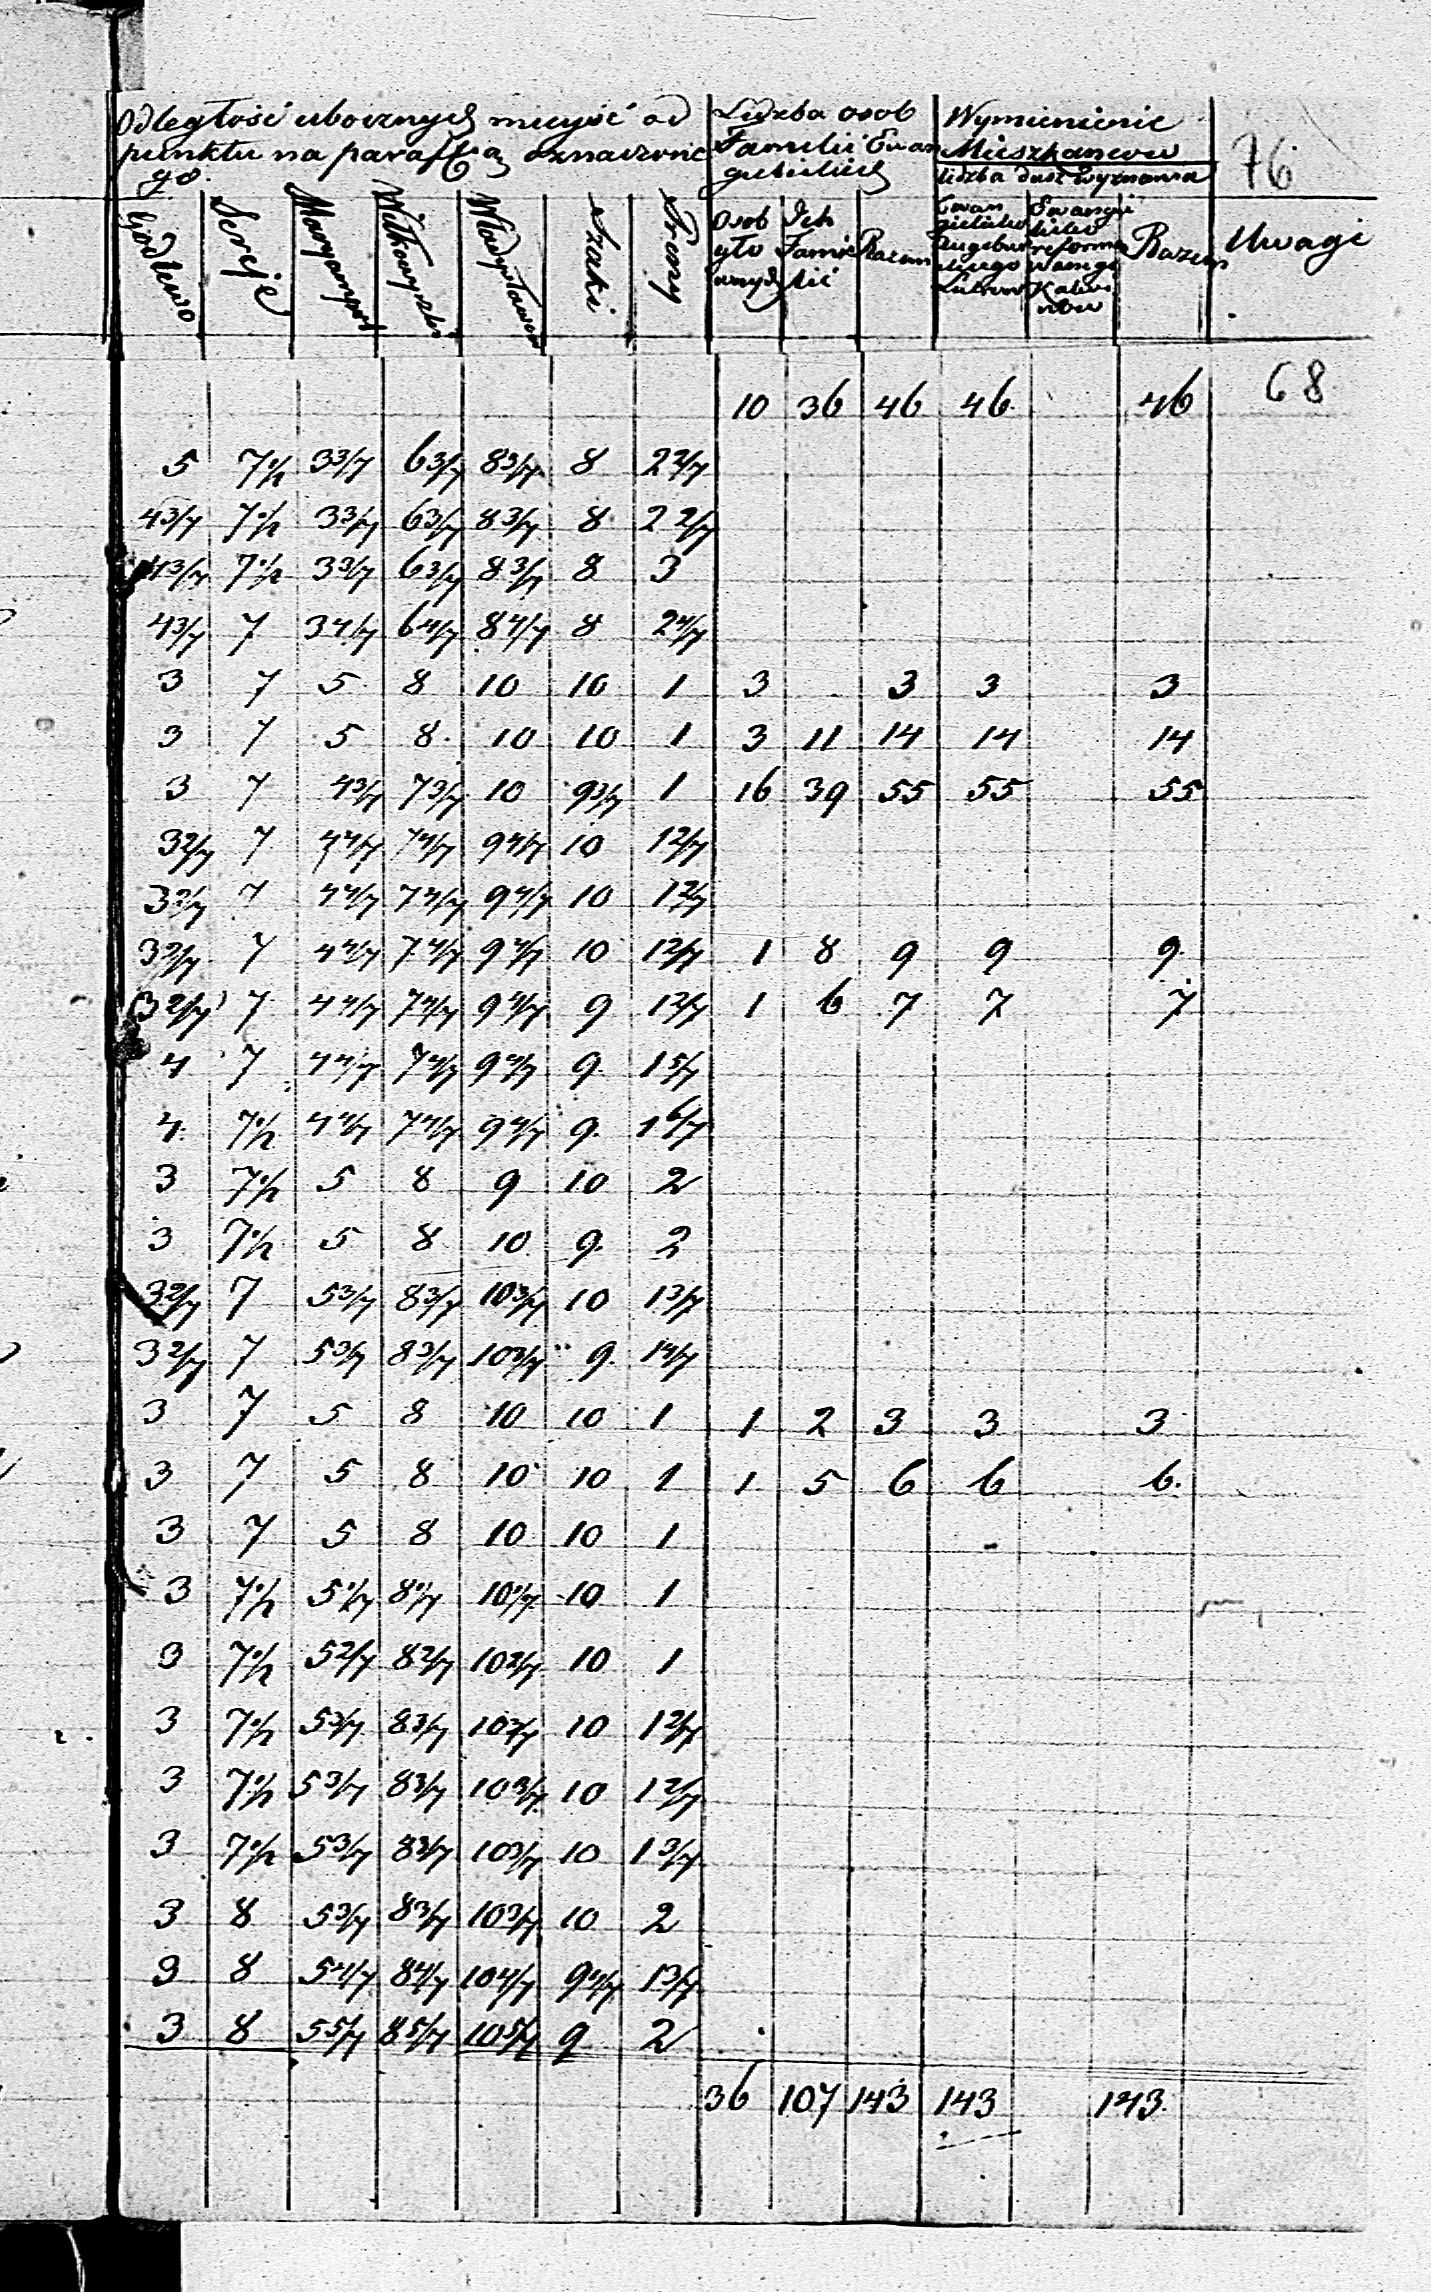 Odległość ubocznych mieysc od
punktu na parafią oznaczone
go.
Liczba osob
Familii Ewan
gielickich
Wymienienie
Mieszkancow
liczba dusz wyznania
76
Godlewo Sereje Maryampol Wiłkowyszki Władysławow Szaki Preny
Osob
yło
wnych
Ich
Fami
lii
Razem
Ewan
gielicko
Augsbur
skiego
Lutrow
Ewangie
licko
reformo
wanego
Kalwi
now
Razem
Uwagi
10 36 46 46 46 68
5 7 1/2 3 3/7 6 3/7 8 3/7 8 2 2/7
4 3/7 7 1/2 3 3/7 6 3/7 8 3/7 8 2 2/7
4 3/7 7 1/2 3 3/7 6 3/7 8 3/7 8 3
4 3/7 7 3 4/7 6 4/7 8 4/7 8 2 4/7
3 7 5 8 10 10 1 3 3 3 3
3 7 5 8 10 10 1 3 11 14 14 14
3 7 4 3/7 7 3/7 10 9 3/7 1 16 39 55 55 55
3 2/7 7 4 4/7 7 4/7 9 4/7 10 1 2/7
3 2/7 7 4 4/7 7 4/7 9 4/7 10 1 2/7
3 2/7 7 4 4/7 7 4/7 9 4/7 10 1 2/7 1 8 9 9 9
3 2/7 7 4 4/7 7 4/7 9 4/7 9 1 2/7 1 6 7 7 7
4 7 4 4/7 7 4/7 9 4/7 9 1 5/7
4 7 1/2 4 4/7 7 4/7 9 4/7 9 1 6/7
3 7 1/2 5 8 9 10 2
3 7 1/2 5 8 10 9 2
3 2/7 7 5 3/7 8 3/7 10 3/7 10 1 3/7
3 2/7 7 5 3/7 8 3/7 10 3/7 9 1 4/7
3 7 5 8 10 10 1 1 2 3 3 3
3 7 5 8 10 10 1 1 5 6 6 6
3 7 5 8 10 10 1
3 7 1/2 5 1/7 8 1/7 10 1/7 10 1
3 7 1/2 5 2/7 8 2/7 10 2/7 10 1
3 7 1/2 5 3/7 8 3/7 10 3/7 10 1 2/7
3 7 1/2 5 3/7 8 3/7 10 3/7 10 1 2/7
3 7 1/2 5 3/7 8 3/7 10 3/7 10 1 3/7
3 8 5 3/7 8 3/7 10 3/7 10 2
3 8 5 4/7 8 4/7 10 4/7 9 4/7 1 3/7
3 8 5 5/7 8 5/7 10 5/7 9 2
36 107 143 143 143